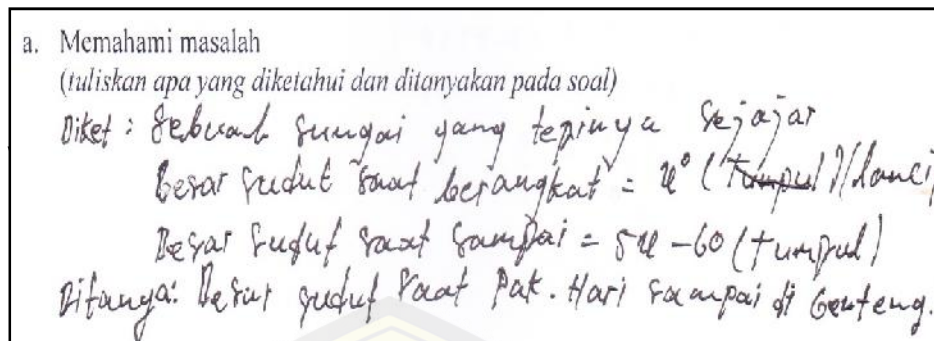 a. Memahami masalah
(tuliskan apa yang diketahui dan ditanyakan pada soal)
Diket : Sebuah sungai yang tepinya sejajar
Besar sudut saat berangkat = u° (Tumpul)/lancip
Besar sudut saat sampai = 5u - 60 (tumpul)
Ditanya: Besar sudut saat Pak. Hari sampai di Genteng.